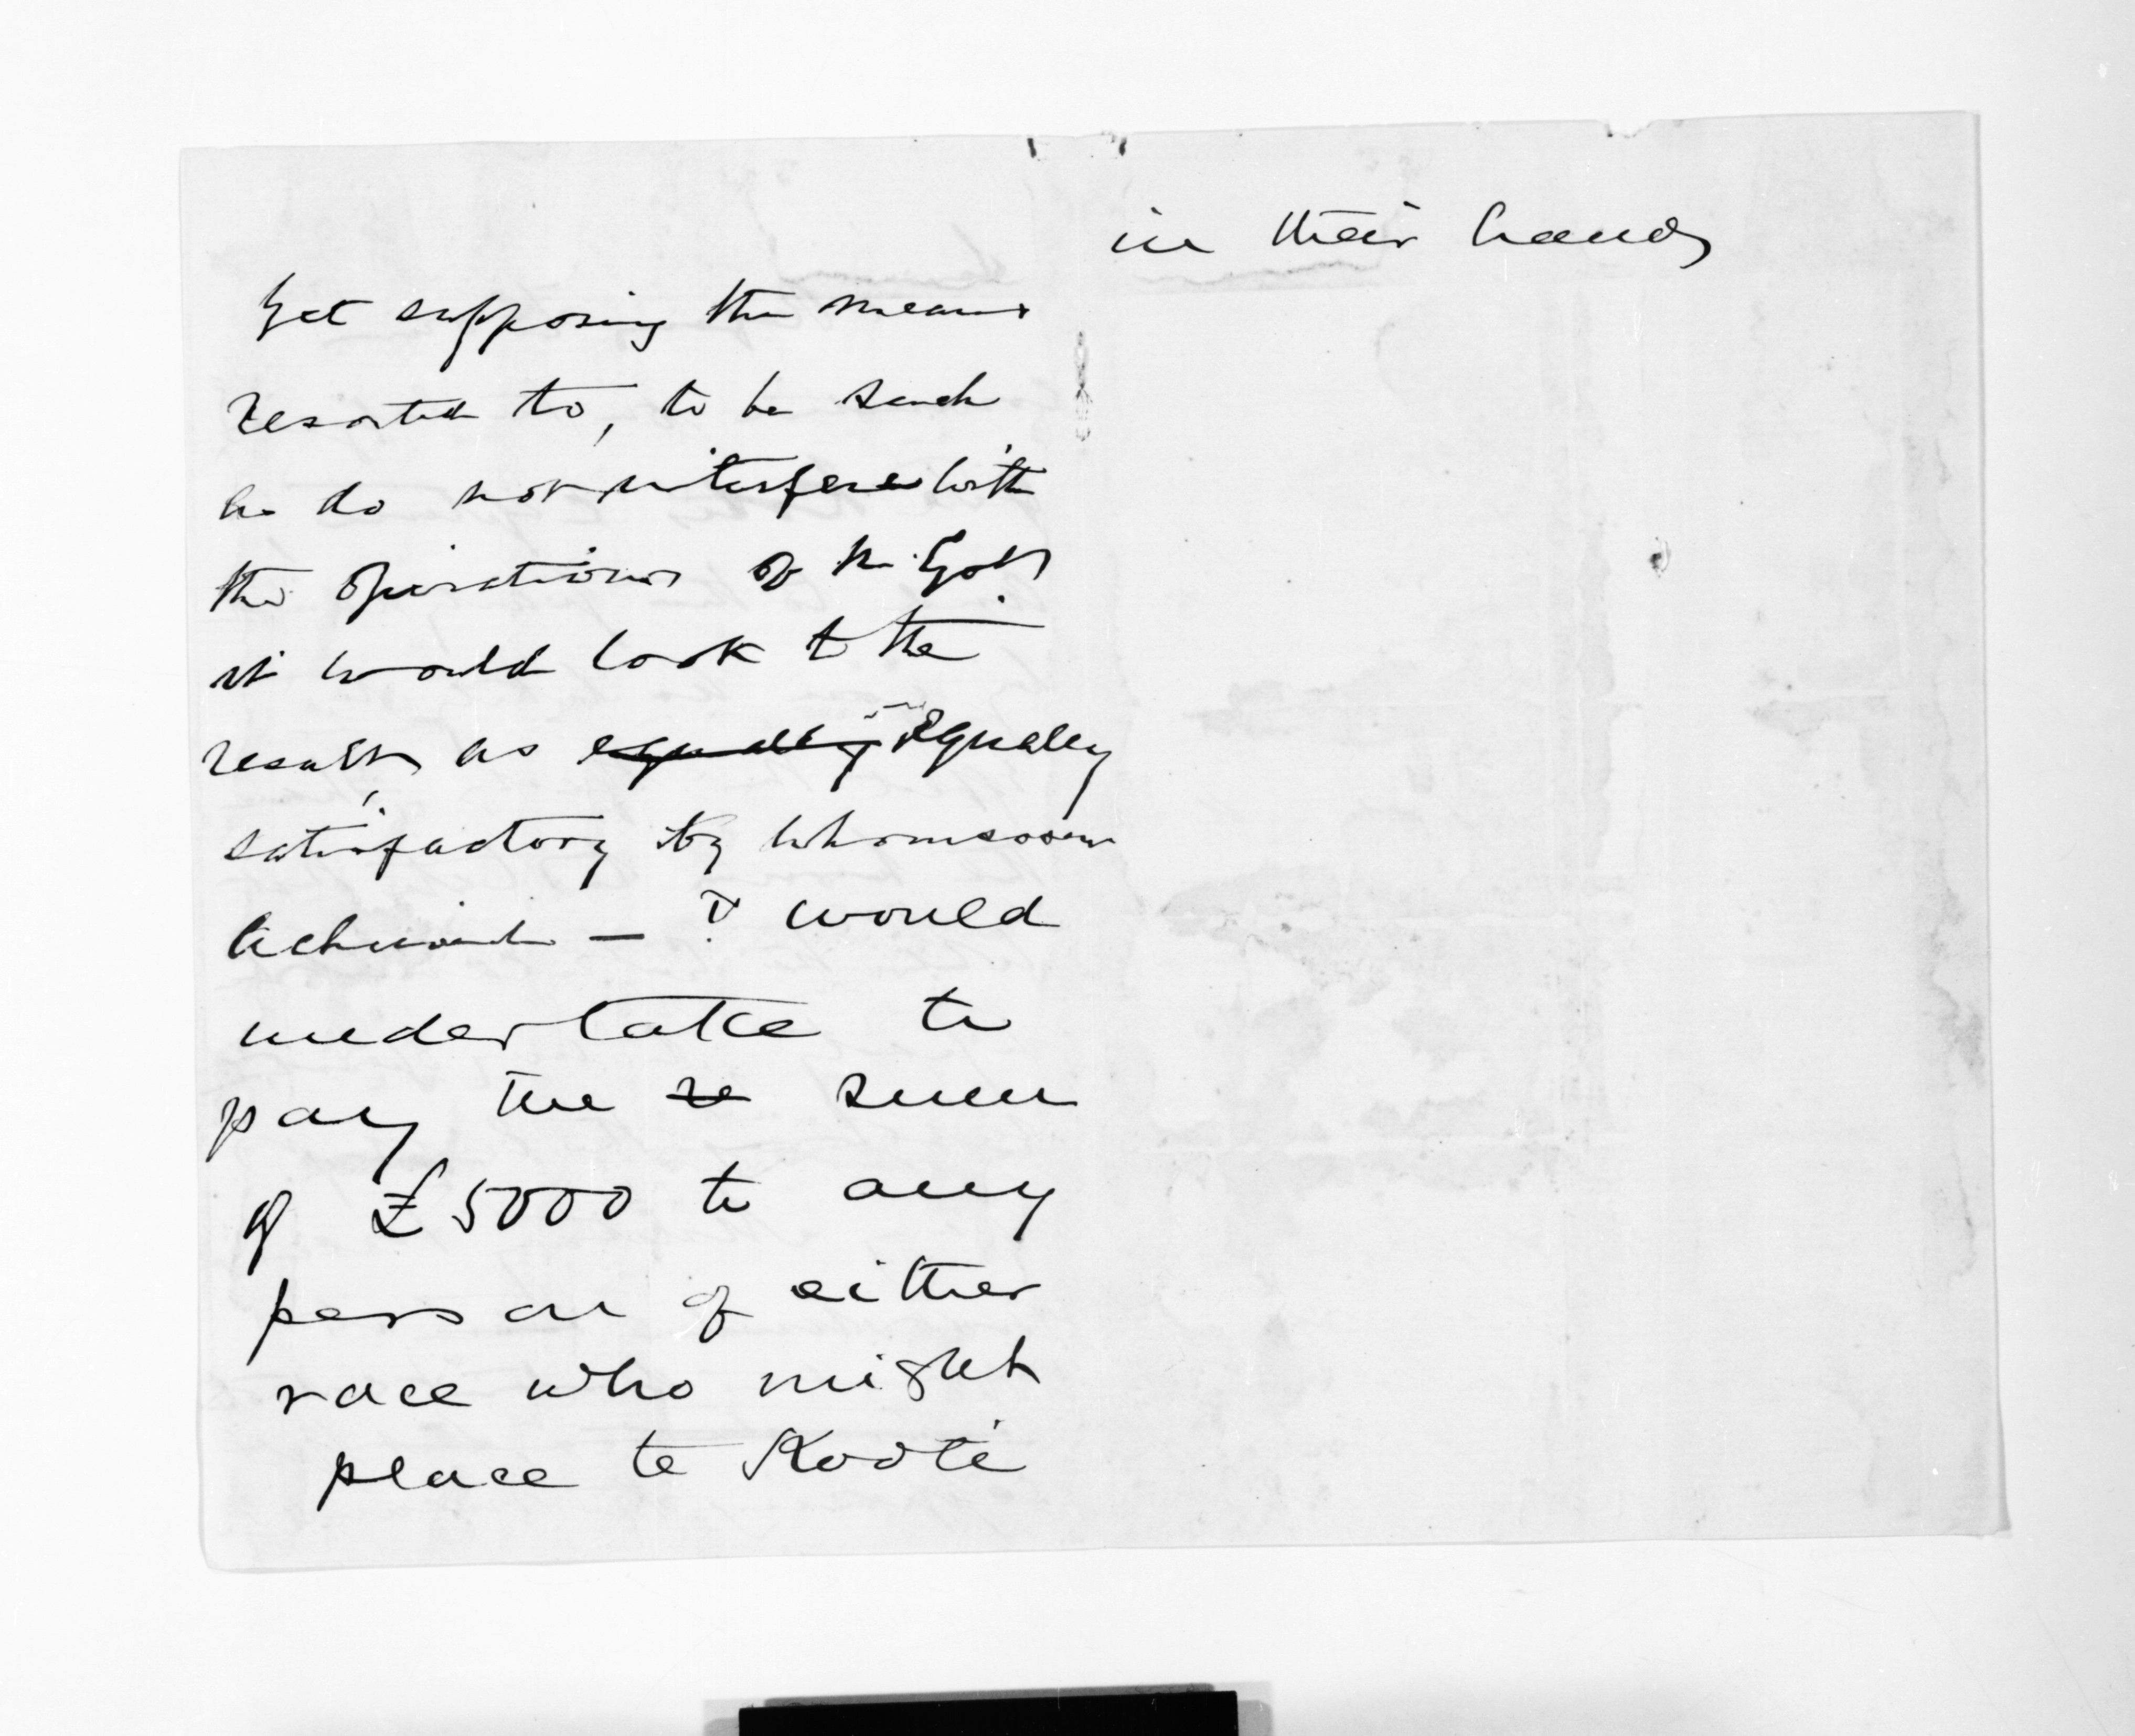 Yet supposing the means
resorted to, to be such
as do not interfere with
the operations of the Govt
it would look to the
results as equally equally
satisfactory by whomsoever
achieved — & would
undertake to
pay the re sum
of £5000 to any
person of either
race who might
place te Kooti
in their hands